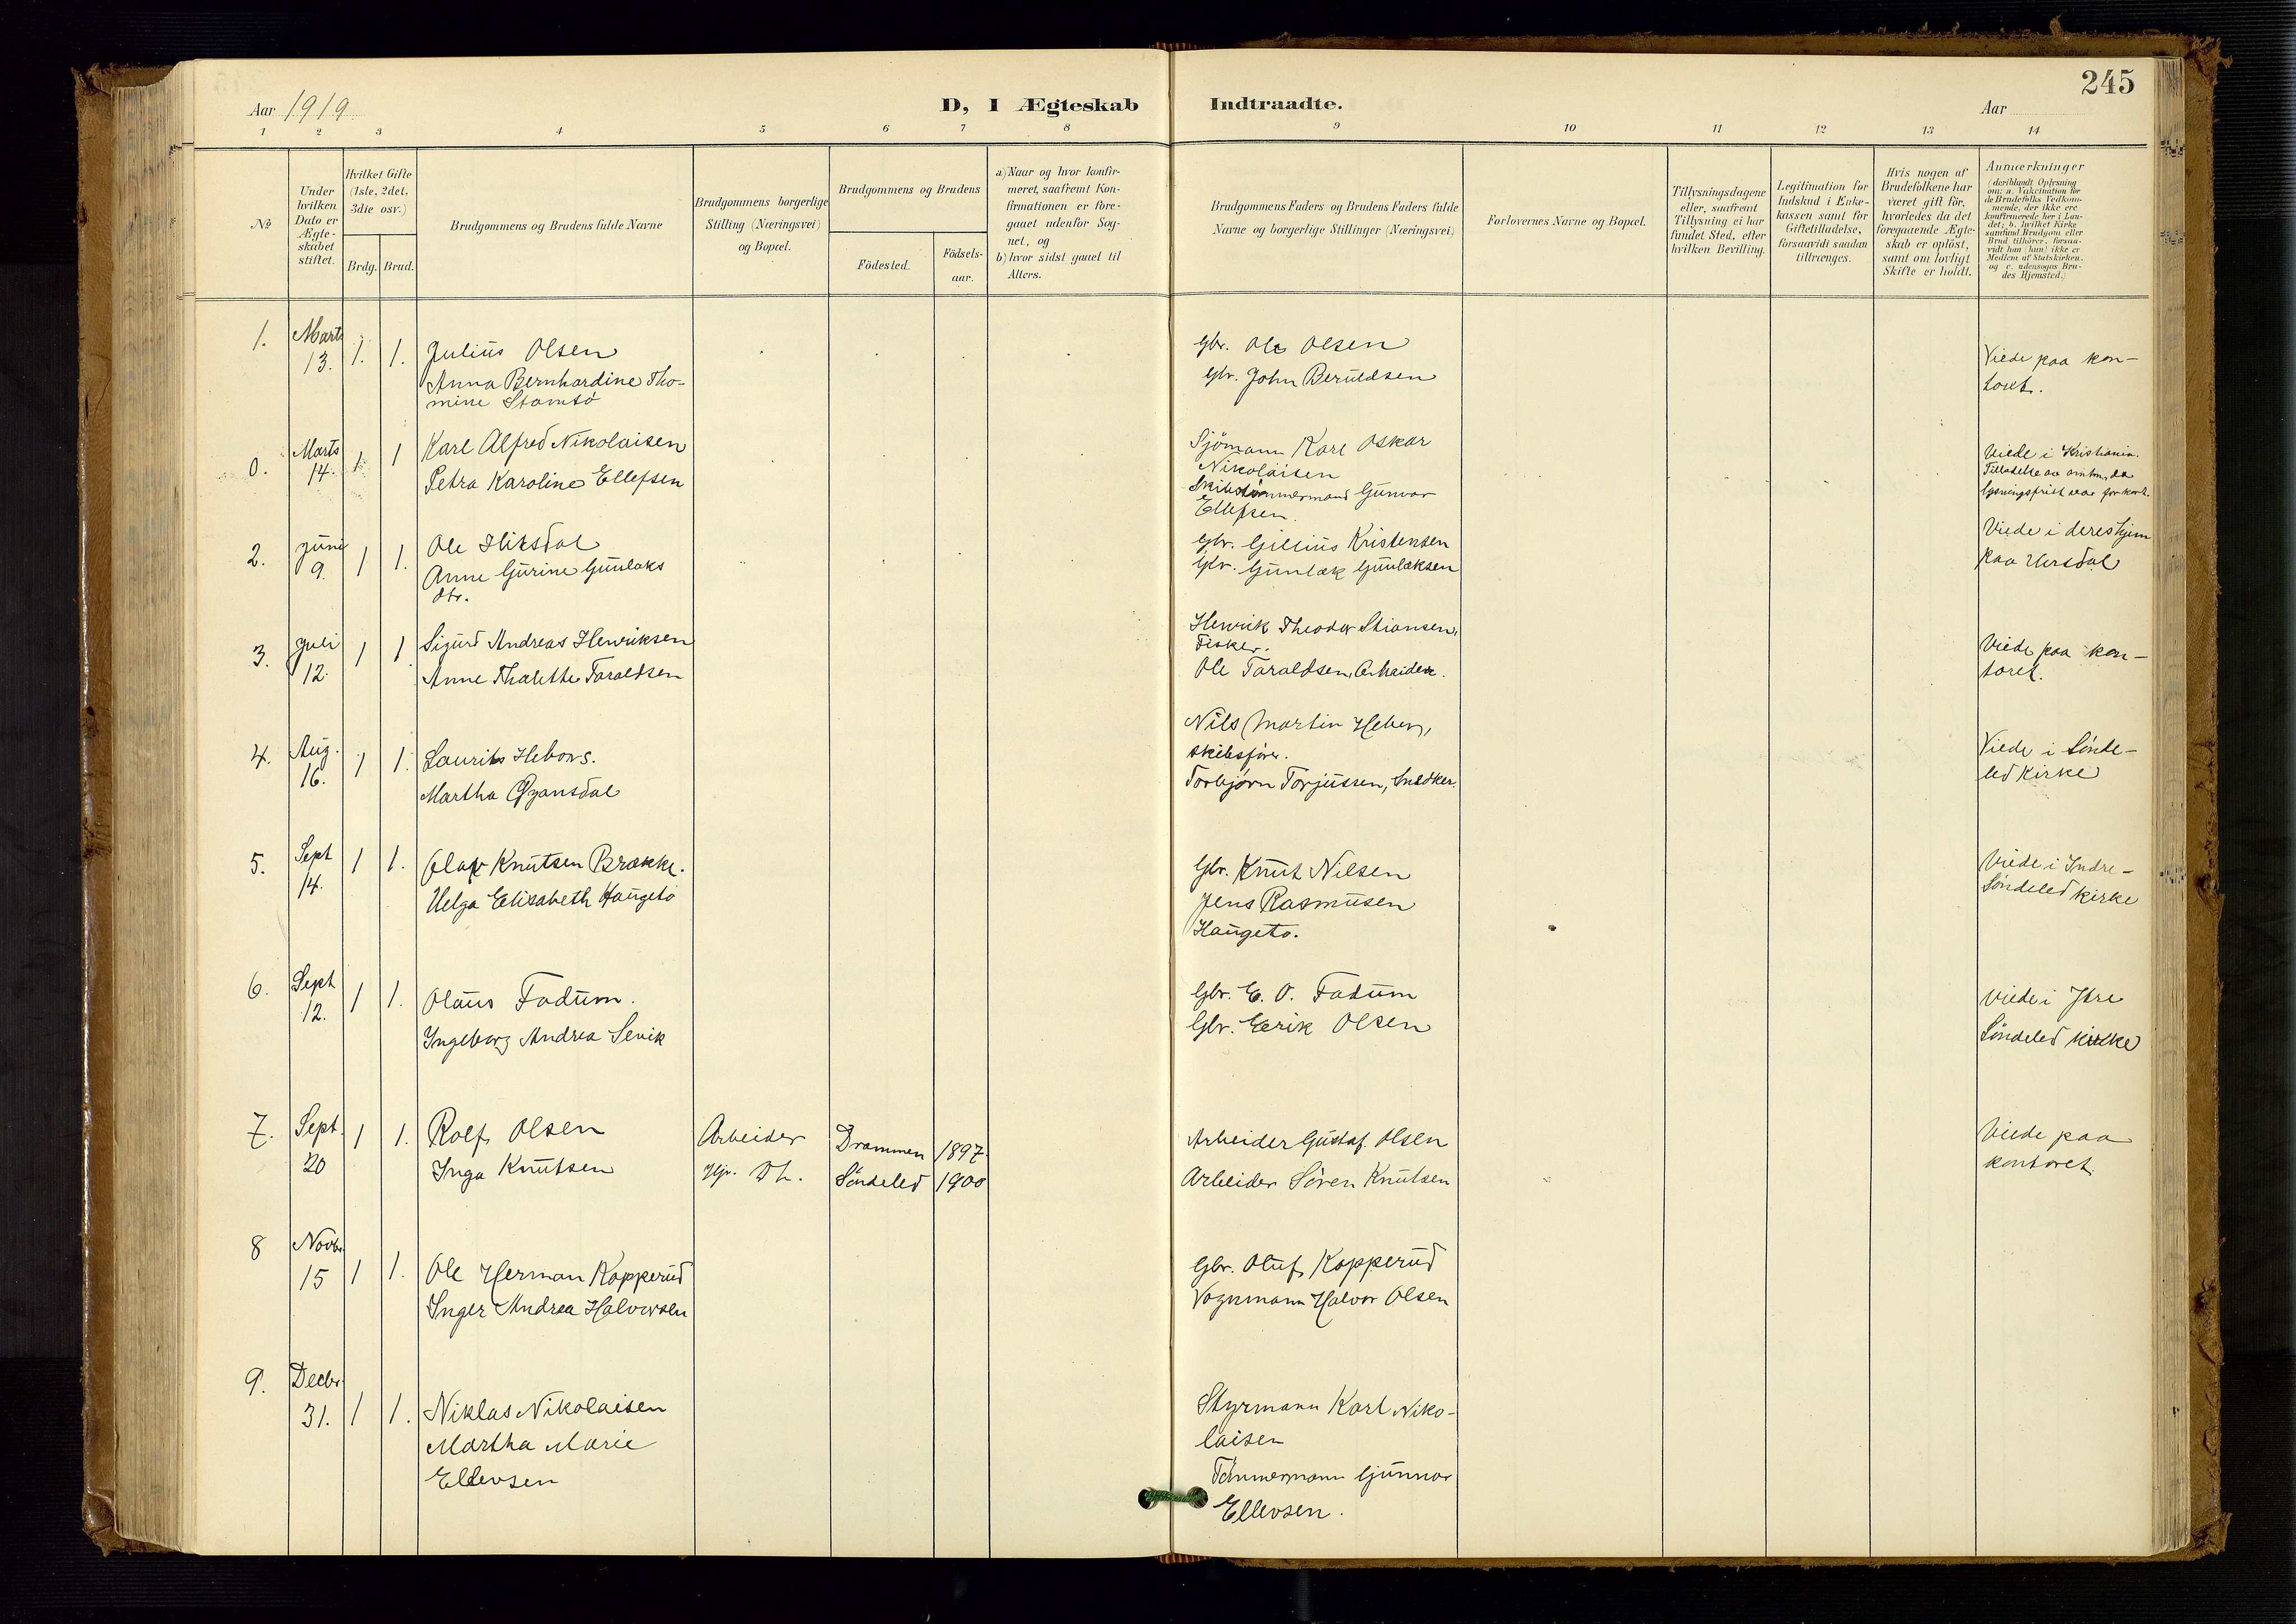 245
Aar 1919
D, I Ægteskab Indtraadte.
Aar
1 2 3 4 5 6 7 8 9 10 11 12 13 14
No
Under
hvilken
Dato er
Ægte-
skabet
stiftet.
Hvilket Gifte
(1ste, 2det,
3die osv.)
Brdg. Brud.
Brudgommens og Brudens fulde Navne
Brudgommens borgerlige
Stilling (Næringsvei)
og Bopæl.
Brudgommens og Brudens
Födested.
Födsels-
aar.
a) Naar og hvor konfir-
meret, saafremt Kon-
firmationen er fore-
gaaet udenfor Sog-
net, og
b) hvor sidst gaaet til
Alters.
Brudgommens Faders og Brudens Faders fulde
Navne og borgerlige Stillinger (Næringsvei)
Forlovernes Navne og Bopæl.
Tillysningsdagene
eller, saafremt
Tillysning ei har
fundet Sted, efter
hvilken Bevilling.
Legitimation for
Indskud i Enke-
kassen samt for
Giftetilladelse,
forsaavidt saadan
tiltrænges.
Hvis nogen af
Brudefolkene har
været gift för,
hvorledes da det
foregaaende Ægte-
skab er oplöst,
samt om lovligt
Skifte er holdt.
Anmærkninger
(deriblandt Oplysning
om: a. Vakcination for
de Brudefolks Vedkom-
mende, der ikke ere
konfirmerede her i Lan-
det; b. hvilket Kirke
samfund Brudgom eller
Brud tilhörer, forsaa-
vidt han (hun) ikke er
Medlem af Statskirken.
og c. udensogns Bru-
des Hjemsted.)
1. Marts 13. 1. 1. Julius Olsen
Anna Bernhardine Tho-
mine Stamsö
Gbr. Ole Olsen
Gbr. John Beruldsen
Viede paa kon-
toret.
0. Marts 14. 1 1 Karl Alfred Nikolaisen
Petra Karoline Ellefsen
Sjömann Karl Oskar
Nikolaisen
Skibstömmermand Gunvor
Ellefsen.
Viede i Kristiania.
Tilladelse av amtm., da
lysningsfrist var for kort.
2. Juni 9. 1 1. Ole
Anne Gurine Gunlaks
dtr.
Gbr. Gillius Kristensen
Gbr. Gunlak Gunlaksen
Viede i deres hjem
paa
3. Juli 12. 1 1 Sigurd Andreas Henriksen
Anne Thalette Taraldsen
Henrik Theodor Stiansen,
Fisker.
Ole Taraldsen, Arbeider.
Viede paa kon-
toret.
4. Aug. 16. 1 1. Laurits
Martha
Nils Martin
skibsförer.
Torbjörn Torjussen, Snedker.
Viede i Sönde-
led Kirke
5. Sept 14. 1 1. Olav Knutsen Brække.
Helga Elisabeth Haugetö
Gbr. Knut Nilsen
Jens Rasmusen
Haugetö.
Viede i Indre-
Söndeled kirke
6. Sept 12. 1 1. Olaus Fadum.
Ingeborg Andrea Sevik
Gbr. E. O. Fadum
Gbr. Eerik Olsen
Viede i Ytre
Söndeled kirke
7. Sept. 20 1 1. Rolf Olsen Arbeider Drammen 1897.
Inga Knutsen Hjr. Dh. Söndeled 1900
Arbeider Gustaf Olsen
Arbeider Sören Knutsen
Viede paa
kontoret.
8 Novbr. 15 1 1. Ole Herman Kopperud
Inger Andrea Halvorsen
Gbr. Oluf Kopperud
Vognmann Halvor Olsen
9. Decbr. 31. 1 1. Niklas Nikolaisen
Martha Marie
Ellevsen
Styrmann Karl Niko-
laisen
Tömmermann Gunnar
Ellevsen.